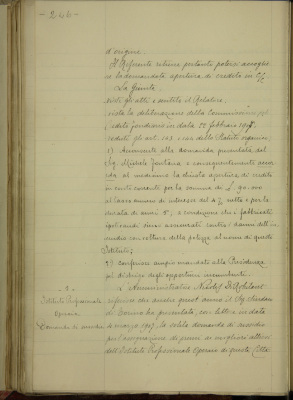 - 246 -
d'origine.
Il Referente ritiene pertanto potersi accoglie
re la domandata apertura di credito in C/C
La Giunta,
visti gli atti e sentito il Relatore,
vista la deliberazione della Commissione pel
Credito fondiario in data 22 febbraio
veduti gli art. e dello Statuto organico,
1) Annuente alla domanda presentata dal
Sig. Michele Fontana e conseguentemente accor
da al medesimo la chiesta apertura di credito
in conto corrente per la somma di L.
al saggio annuo di interesse del 4 % netto e per la
durata di anni 5, a condizione che i fabbricati
ipotecandi siano assicurati contro i danni dell'in
cendio con voltura della polizza al nome di questo
Istituto;
2) conferisce ampio mandato alla Presidenza
pel disbrigo degli opportuni incombenti.
- 5 -
Istituto Professionale
Operaio
Domanda di sussidio
L'Amministratore Nobile di Robilant
riferisce che anche quest'anno il Sig. Sindaco
di Torino ha presentata, con lettera in data
di marzo 1907, la solita domanda di sussidio
per l'assegnazione di premi ai migliori allievi
dell'Istituto Professionale Operaio di questa Città